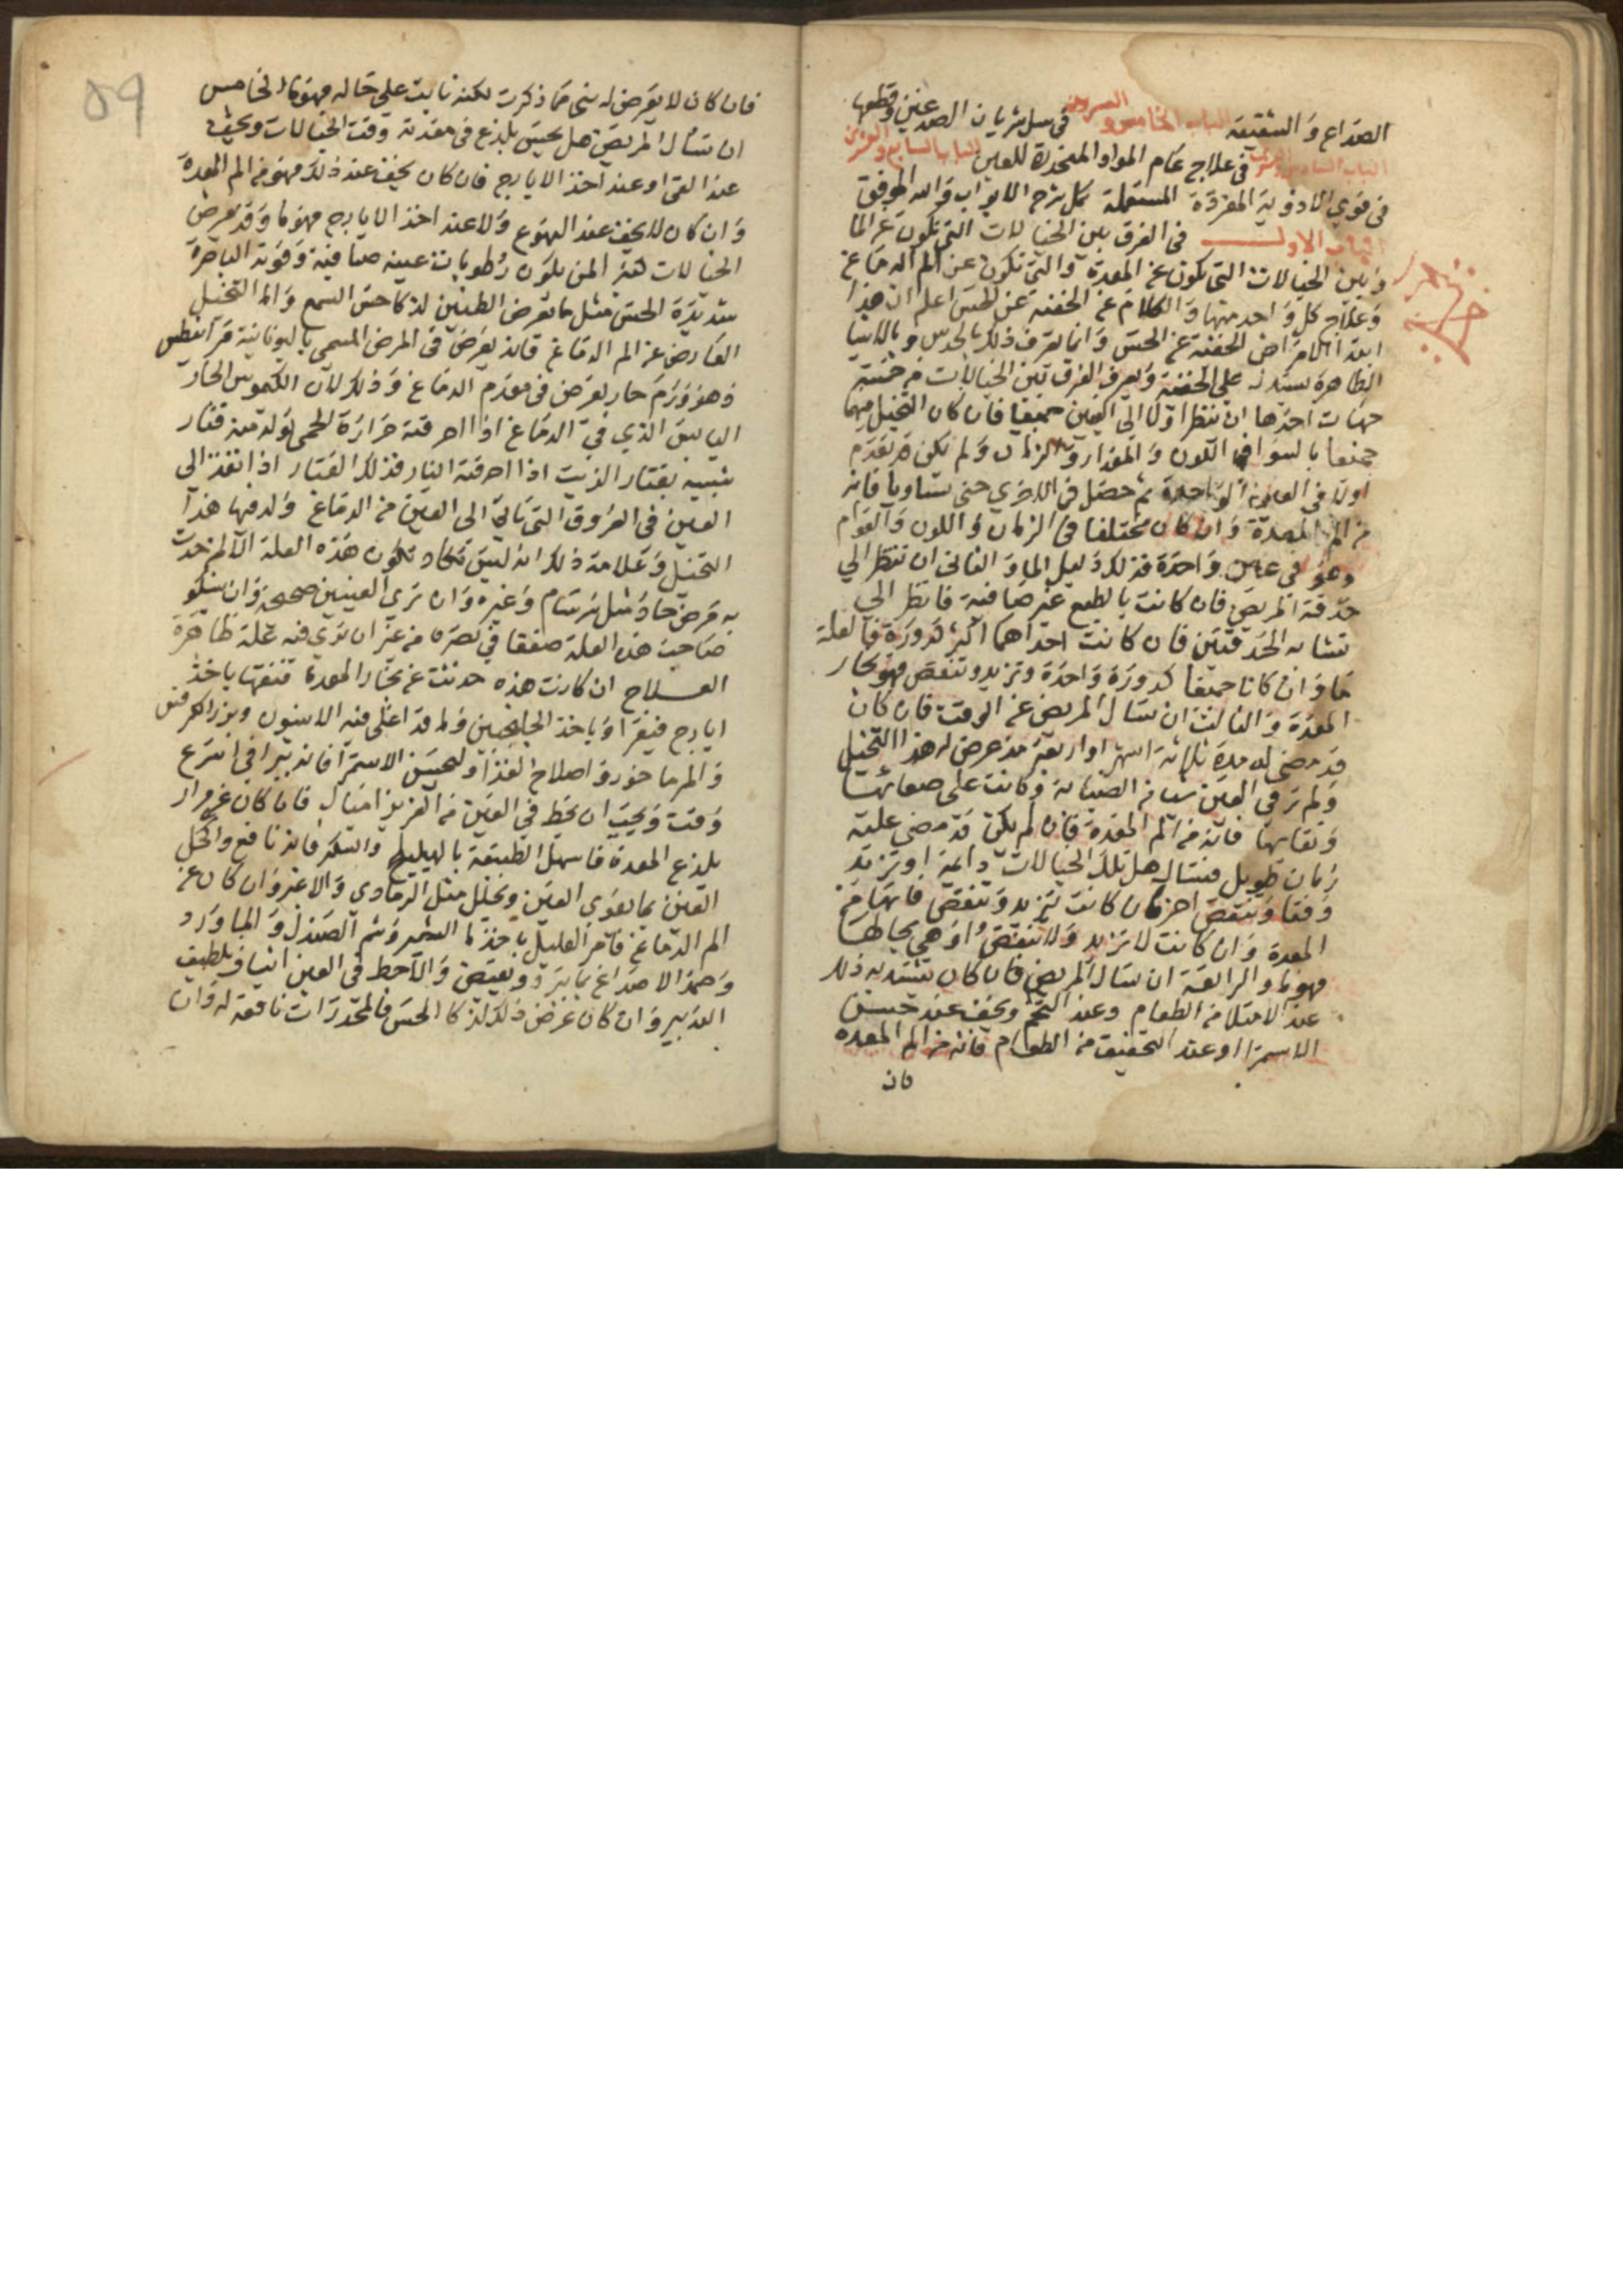 الصداع والشقيقة الباب الخامس والعشرون في سل شريان الصدغين وقطعها
الباب السادس والعشرون في علاج عام المواد المنحدرة للعين الباب السابع والعشرون
في قوي الادوية المفردة المستعملة كل شرح الابواب والله الموفق
الباب الاول في الفرق بين الخيالات التي تكون عن الما
وبين الخيالات التي تكون عن المعدة والتي تكون عن الم الدماغ
وعلاج كل واحد منها والكلام عن الخفية عن الحس اعلم ان هذا
ابتدا الامراض الخفية عن الحس وانما تعرف ذلك بالحدس وبالاشيا
الظاهرة يستدل على الخفية ويعرف الفرق بين الخيالات من خمسة
جهات احدها ان تنظر اولا الى العين جميعا فان كان التخيل فيهما
جميعا بالسوا في اللون والمقدار والزمان ولم تكن قد تقدم
اولا في العين الواحدة ثم حصل في الاخري حتى تساويا فانه
من الم المعدة وان كان مختلفا في الزمان واللون والقوام
وهو في عين واحدة فذلك دليل الما والثاني ان تنظر الي
حدقة المريض فان كانت بالطبع غير صافية فانظر الي
تشابه الحدقتين فان كانت احداهما اكثر كدورة فالعلة
ما وان كانا جميعا كدورة واحدة وتزيد وتنقص فهو بخار
المعدة والثالث ان تسال المريض عن الوقت فان كان
قد مضى له مدة ثلاثة اشهر او اربعة مذ عرض له هذا التخيل
ولم تر في العين شيا من الضبابة وكانت على صفائها
ونقائها فانه من الم المعدة فان لم يكن قد مضى عليه
زمان طويل فتسال هل تلك الخيالات دائمة او تزيد
وقتا وتنقص اخر فان كانت تزيد وتنقص فانها من
المعدة وان كانت لا تزيد ولا تنقص او هي بحالها
فهو ما والرابعة ان تسال المريض فان كان تشتد به ذلك
عند الامتلا من الطعام وعند التخم ويخف عند حسن
الاستمرا او عند التخفيف من الطعام فانه من الم المعدة
فان
٥٩
فان كان لا يعرض له شي مما ذكرت لكنه ثابت على حاله فهو ما والخامس
ان تسال المريض هل يحس بلذع في معدته وقت الخيالات ويخف
عند القي او عند اخذ الايارج فان كان يخف عند ذلك فهو من الم المعدة
وان كان لا يخف عند التهوع ولا عند اخذ الايارج فهو ما وقد يعرض
الخيالات لمن يكون رطوبات عينيه صافية وقوته الباصرة
شديدة الحس مثل ما يعرض الطنين لذكا حس السمع واما التخيل
العارض عن الم الدماغ فانه يعرض في المرض المسمى باليونانية قرانيطس
وهو ورم حار يعرض في مقدم الدماغ وذلك لان الكيموس الحار
اليابس الذي في الدماغ اذا احرقته حرارة الحمى تولد منه قتار
شبيه بقتار الزيت اذا احرقته النار فذلك القتار اذا نفذ الى
العين في العروق التي تاتي الى العين من الدماغ ولد فيها هذا
التخيل وعلامة ذلك انه ليس تكاد تكون هذه العلة الا لمن حدث
به مرض حاد مثل سرسام وغيره وان تري العينين صحيحة وان يشكو
صاحب هذه العلة ضعفا في بصره من غير ان تري فيه علة ظاهرة
العـلاج ان كانت هذه حدثت عن بخار المعدة فنقها باخذ
ايارج فيقرا وياخذ الجلنجبين ولما قد اغلى فيه الانيسون وبزر الكرفس
والمرماحوز واصلاح الغذا ولحسن الاستمرا فانه يبرا في اسرع
وقت ويجب ان يحط في العين من العزيز اميال فان كان عن مرار
يلذع المعدة فاسهل الطبيعة بالهليلج والسكر فانه نافع واكحل
العين بما يقوي العين ويحلل مثل الرمادي والاغبر وان كان عن
الم الدماغ فامر العليل باخذ ما الشعير وشم الصندل والماورد
وضمد الاصداغ بما يبرد ويقبض ولا تحط في العين اشياف بلطيف
التدبير وان كان عرض ذلك لذكا الحس فالمخدرات نافعة له وان